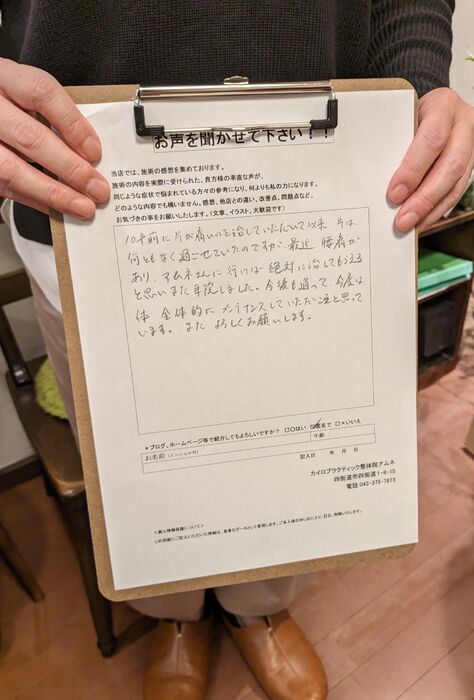 お声を聞かせて下さい！！
当店では、施術の感想を集めております。
施術の内容を実際に受けられた、貴方様の率直な声が、
同じような症状で悩まれている方々の参考になり、何よりも私の力になります。
どのような内容でも構いません。感想、他店との違い、改善点、問題点など、
お気づきの事をお願いします。（文章、イラスト、大歓迎です）
10年前に片が痛いのを治していただいて以来 片は、
何ともなく過ごせていたのですが 最近 腰痛が
あり、アムネさんに 行けば 絶対に治してもらえる
と思いまた来院しました。今後も通って、今度は
体 全体的に メンテナンスしていただこうと思って
います。 また よろしくお願いします。
＊ブログ、ホームページ等で紹介してもよろしいですか？ 口〇はい 口匿名で 口×いいえ
お名前（イニシャル可） 年齢
記入日 年 月 日
カイロプラクティック整体院アムネ
四街道市四街道1-8-15
電話 043-375-7873
＜個人情報保護について＞
この用紙にご記入いただいた情報は、貴重なデータとして管理します。ご本人様の申し出により、訂正、削除いたします。